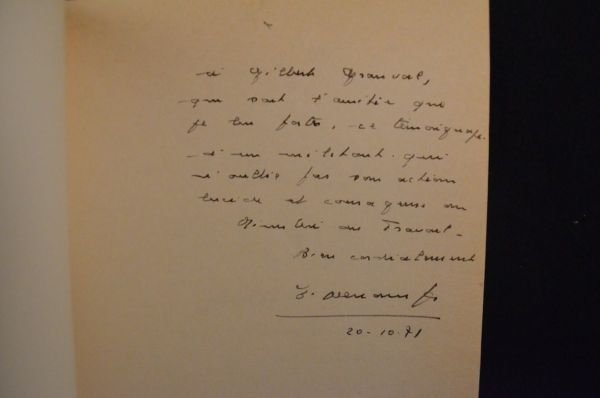 à Gilbert Grandval,
qui sait l'amitié que
je lui porte, ce témoignage
d'un militant qui
n'oublie pas son action
lucide et courageuse au
Ministère du Travail -
Bien cordialement
20-10-71